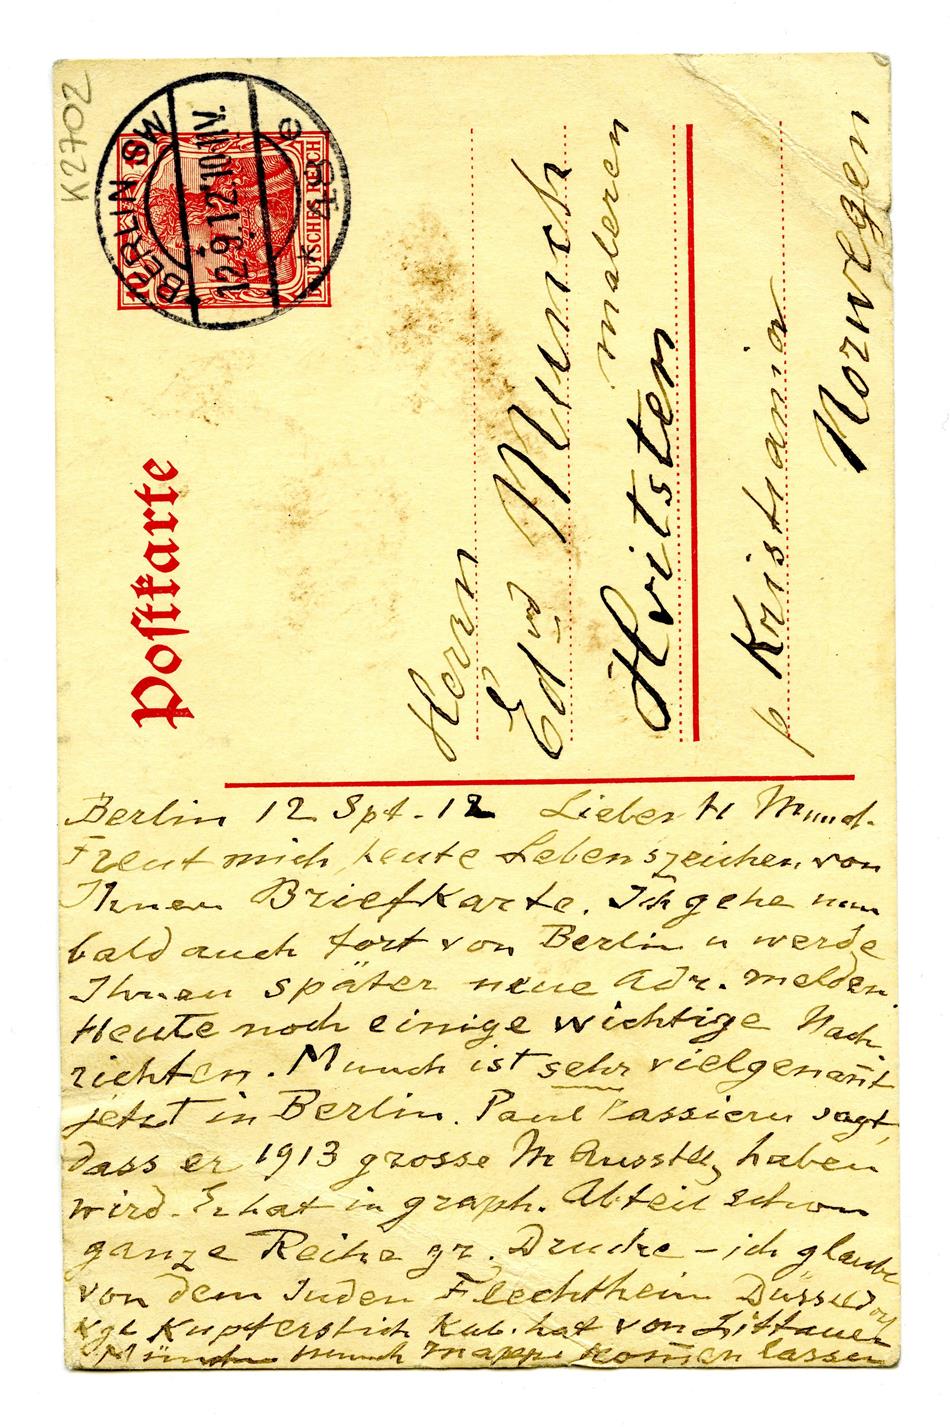 K2702
BERLIN SW
12.9.12.10-11V.
* 49 e
10
DEUTSCHES REICH
Postkarte
Herrn
Edvrd Munch
maleren
Hvitsten
p Kristiania
Norwegen
Berlin 12 Spt. 12 Lieber H Munch.
Freut mich, heute Lebenszeichen von
Ihnen Briefkarte. Ich gehe nun
bald auch fort von Berlin u werde
Ihnen später neue Adr. melden.
Heute noch einige wichtige Nach-
richten. Munch ist sehr vielgenan̄t
jetzt in Berlin. Paul Cassierer sagt,
dass er 1913 grosse M Ausstellg haben
wird. Er hat in graph. Abteil schon
ganze Reihe gr. Drucke – ich glaube
von dem Juden Flechtheim Düsseldorf
Kgl Kupferstich Kab. hat von Littauer
München Munch Mappe kom̄en lassen